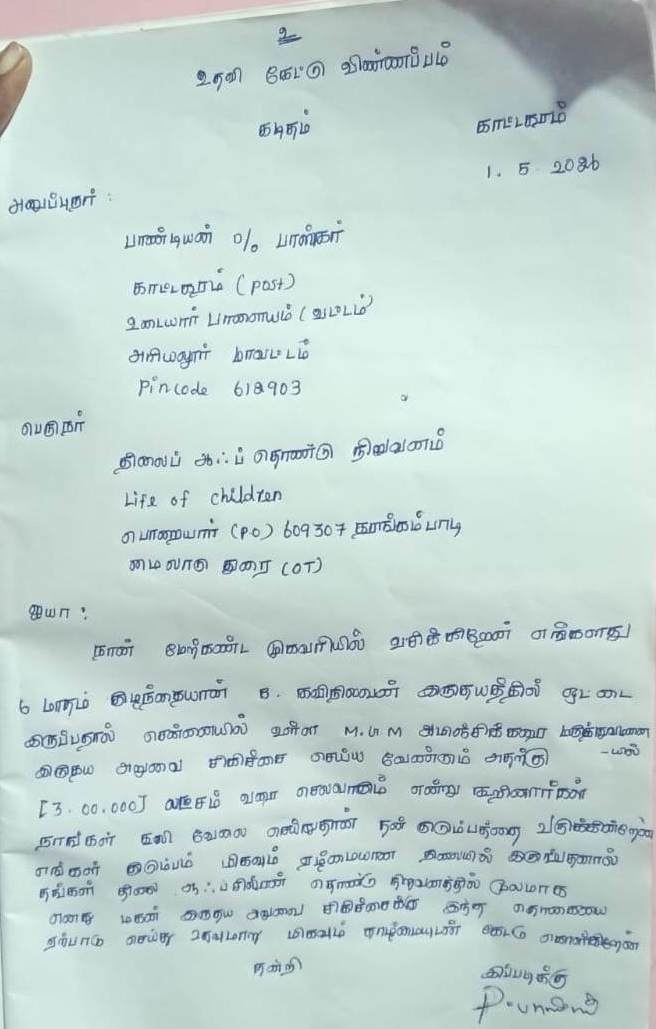 உ
உதவி கேட்டு விண்ணப்பம்
கடிதம்
காட்டகரம்
1. 5. 2026
அனுப்புநர் :
பாண்டியன் % பாஸ்கர்
காட்டகரம் (post)
உடையார் பாளையம் (வட்டம்)
அரியலூர் மாவட்டம்
Pincode 612903
பெறுநர்
லைப் ஆஃப் தொண்டு நிறுவனம்
Life of children
பொறையார் (P.O) 609307 தரங்கம்பாடி
மைலாடு துறை (DT)
ஐயா :
நான் மேற்கண்ட முகவரியில் வசிக்கிறேன் எங்களது
6 மாதம் குழந்தையான B. கவிநிலவன் இருதயத்தில் ஓட்டை
இருப்பதால் சென்னையில் உள்ள M.G.M மருத்துவமனை
-யில்
இருதய அறுவை சிகிச்சை செய்ய வேண்டும் அதற்கு
[3.00.000] லட்சம் வரை செலவாகும் என்று கூறினார்கள்
நாங்கள் கூலி வேலை செய்துதான் என் குடும்பத்தை
எங்கள் குடும்பம் மிகவும் ஏழ்மையான நிலையில் இருப்பதனால்
தங்கள் லைப் ஆஃப் சில்ரன் தொண்டு நிறுவனத்தில் மூலமாக
எனது மகன் இருதய அறுவை சிகிச்சைக்கு இந்த தொகையை
ஏற்பாடு செய்து உதவுமாறு மிகவும் தாழ்மையுடன் கேட்டு கொள்கிறேன்
நன்றி
இப்படிக்கு